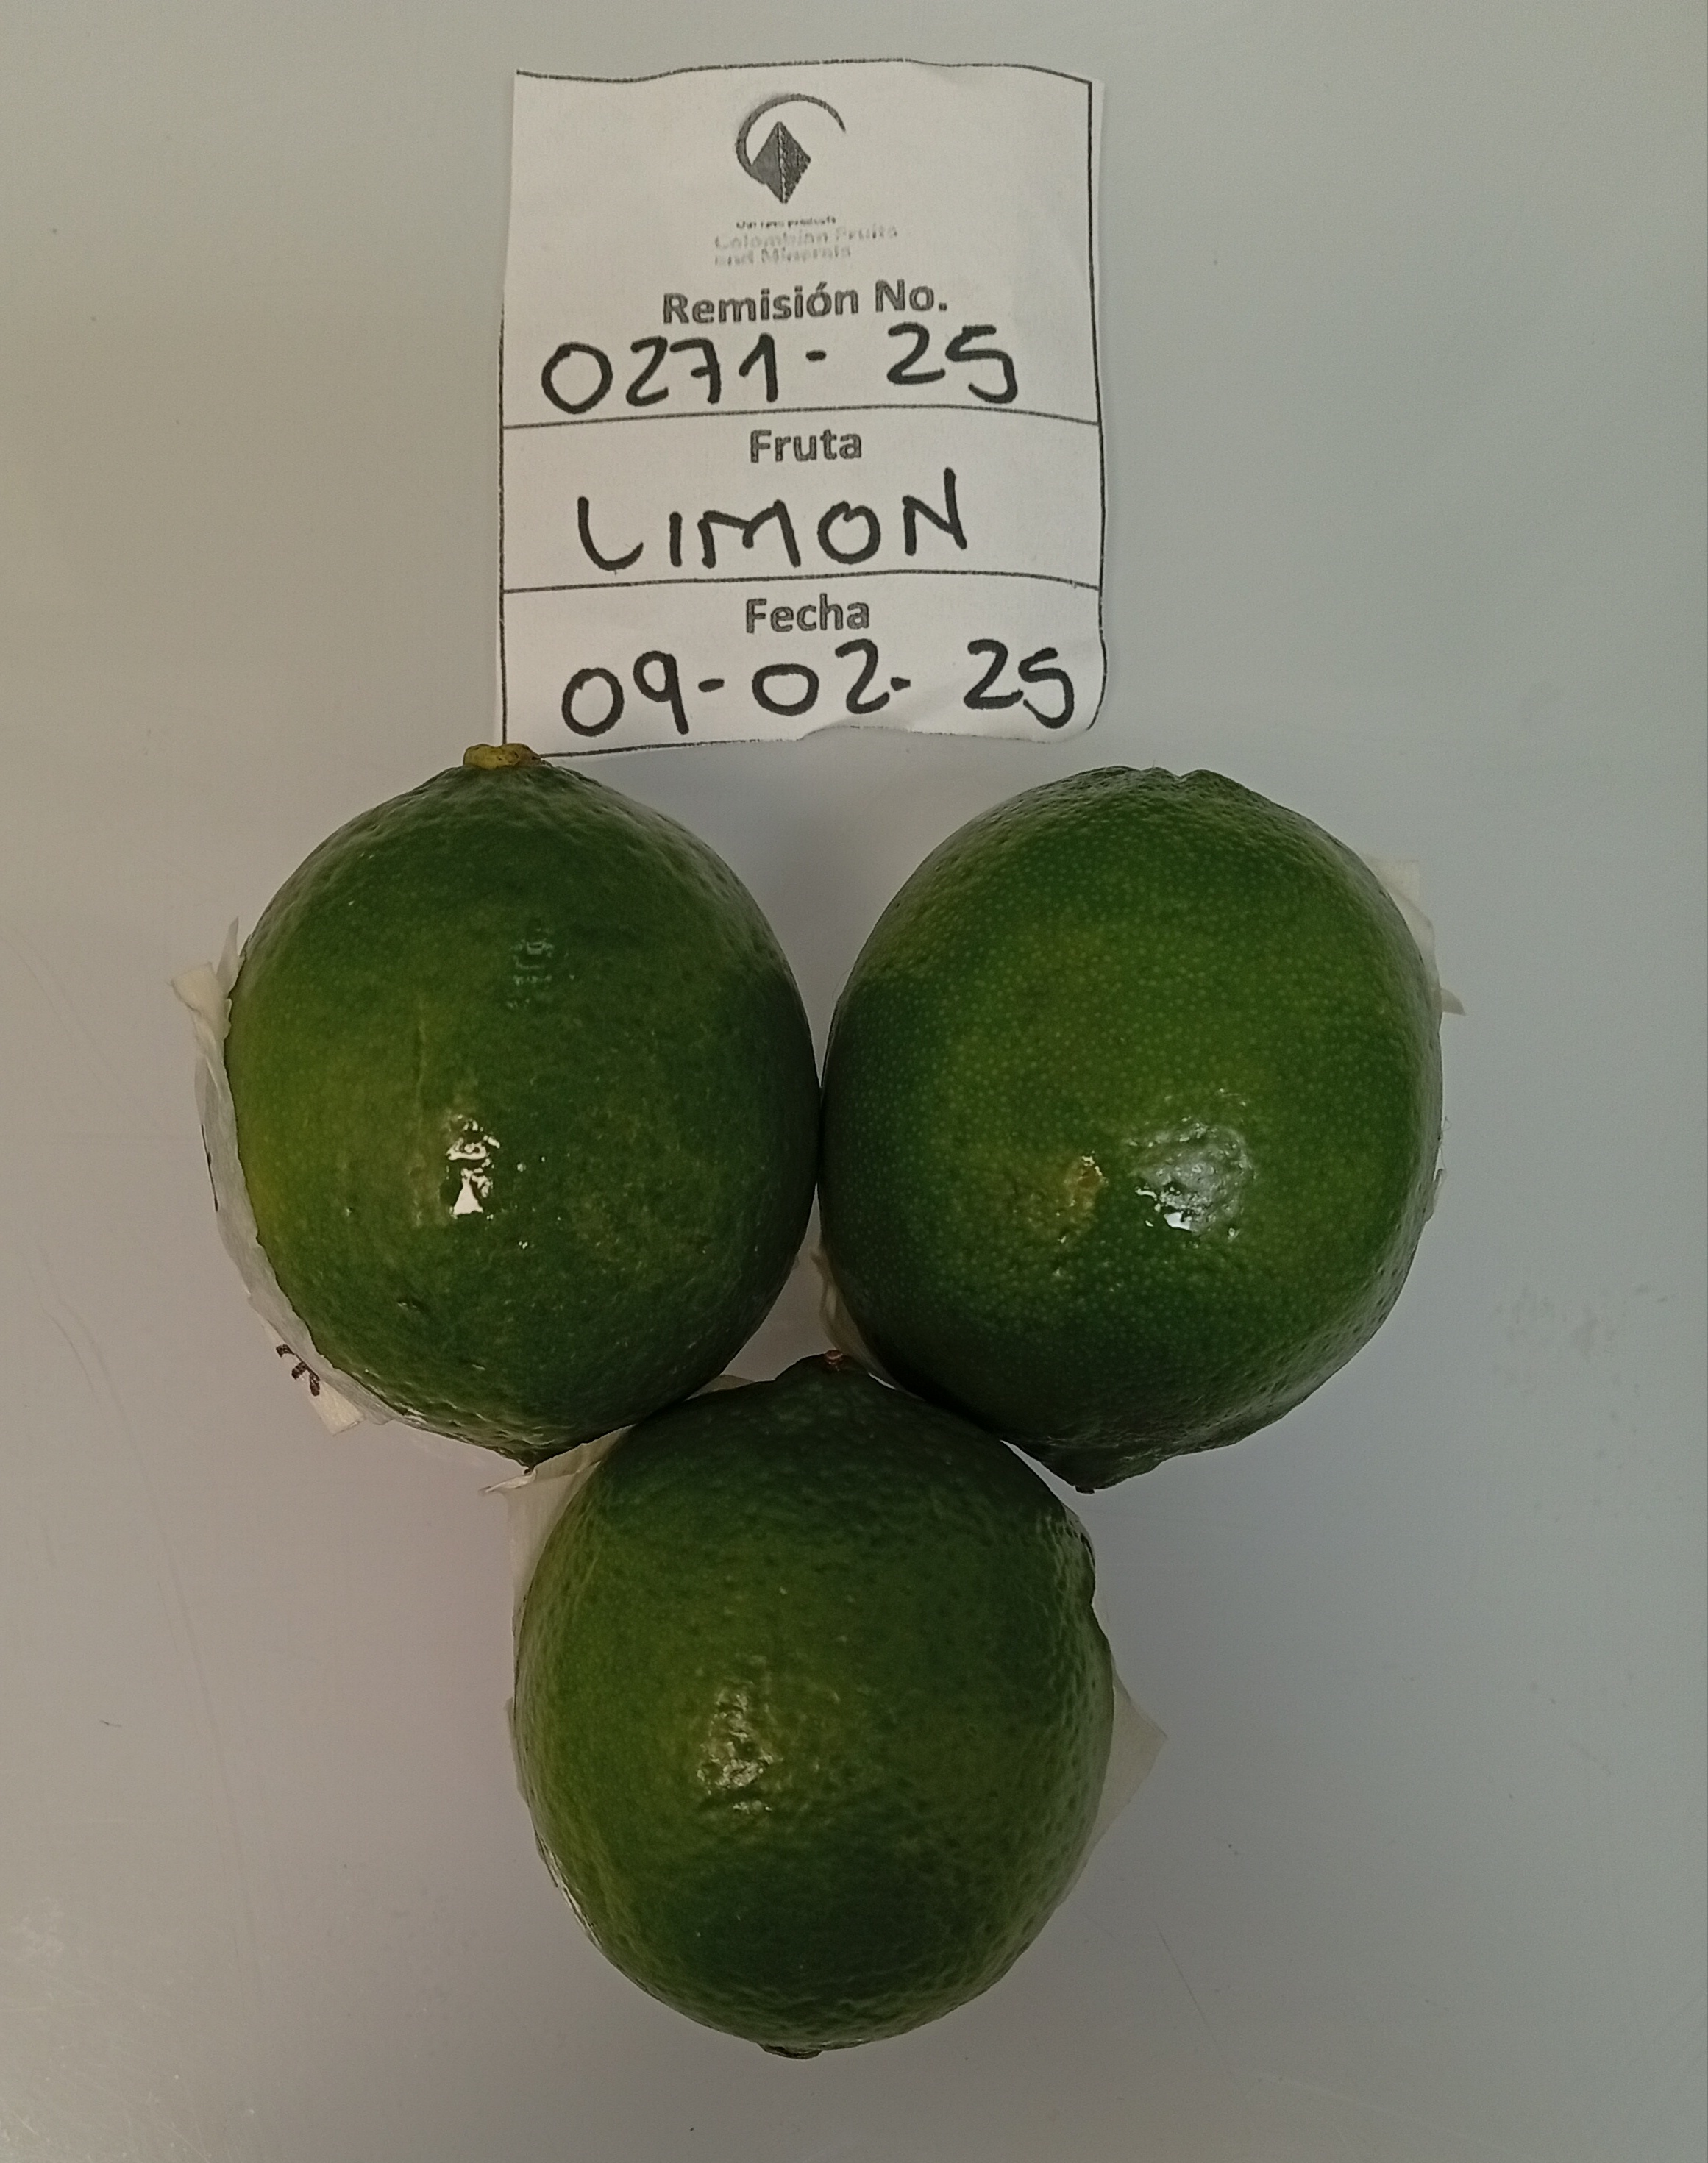 Colombian Fruits
and Minerals
Remisión No.
0271-25
Fruta
LIMON
Fecha
09-02-25